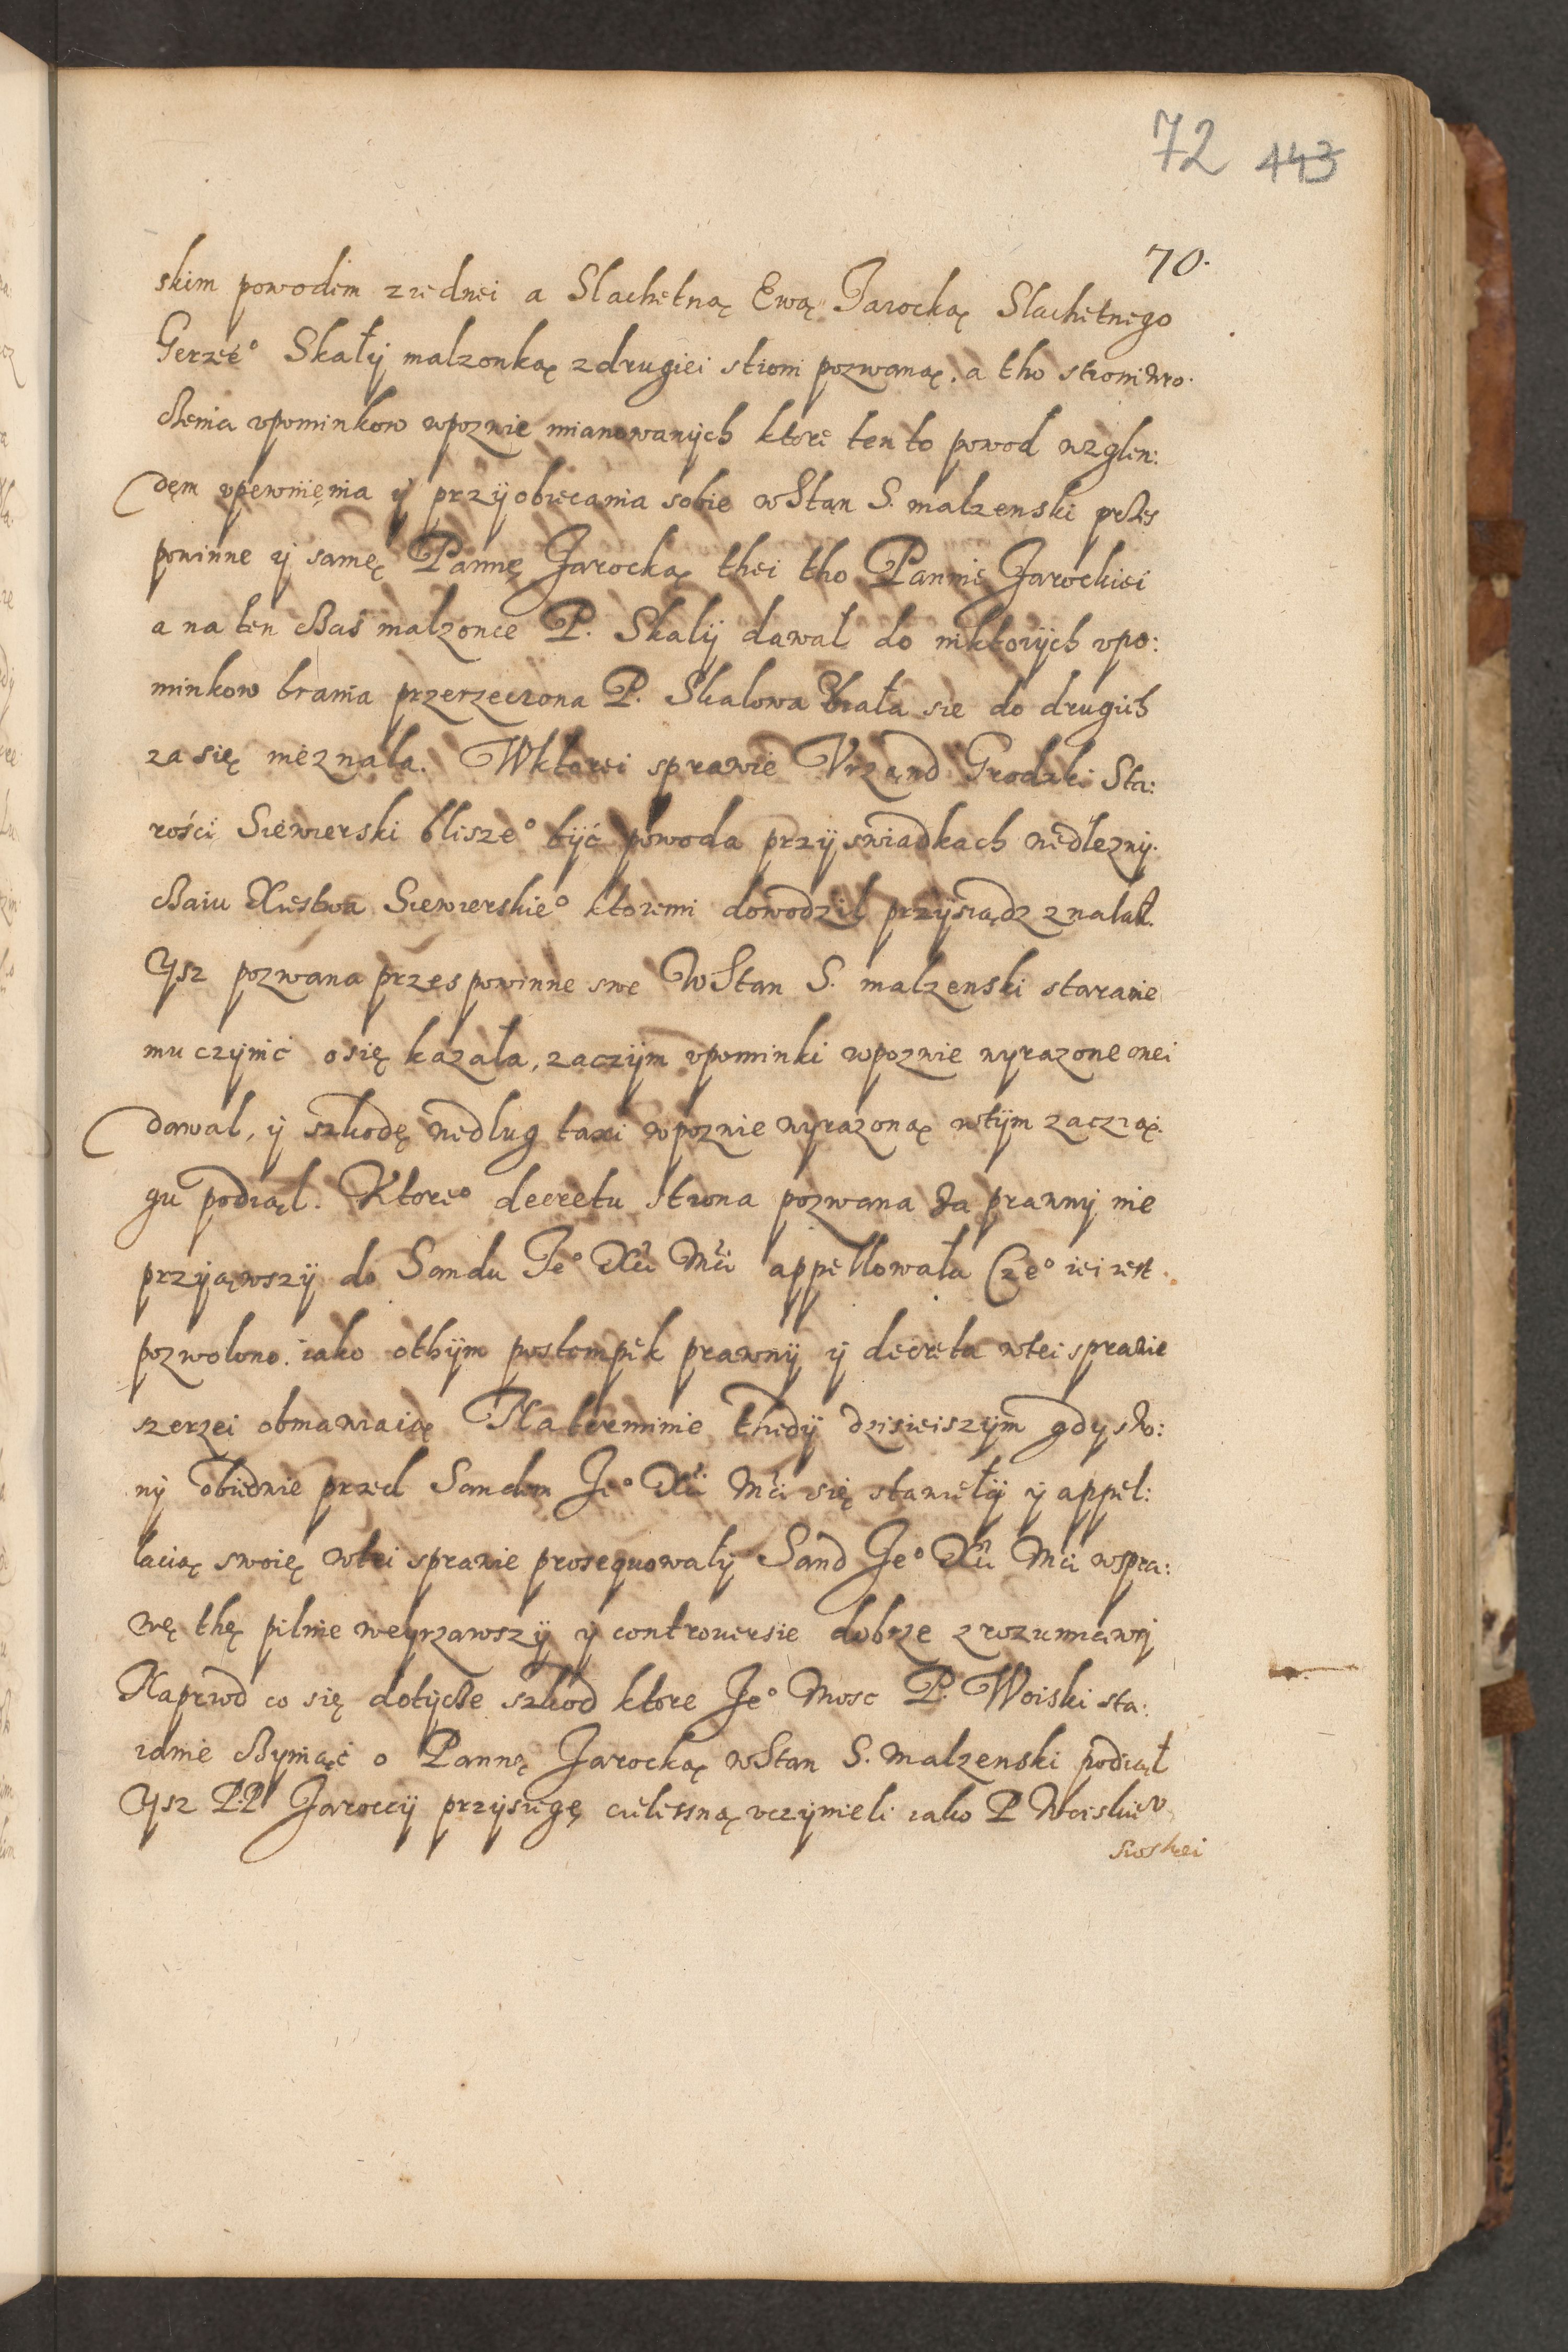 72 443
70.
skim powodem z iednei a Slachetną Ewą Jarocką Slachetnego
Gerzeº Skałÿ malzonką z drugiei stroni pozwaną. a tho stroni wro.
czenia vpominkow w poznie mianowanÿch ktore ten to powod wzglen:
dęm vpewnięnia ÿ przÿobiecania sobie w Stan S. malzenski przes
powinne ÿ samę Pannę Jarocką thei tho Pannie Jarockiei
a na ten czas malzonce P. Skalÿ dawal do niktorÿch vpo:
minkow brania przerzeczona P. Skalowa znała sie do drugich
zasię nieznala. W ktorei sprawie Vrzand Grodzki Sta:
rości Siewierski bliszeº bÿć powoda przÿ swiadkach wedle znÿ.
czaiu Xiestwa Siewierskieº ktoremi dowodził przÿsiądz znalazł.
Ysz pozwana przes powinne swe W Stan S. malzenski staranie
mu czÿnić o się kazała, zaczÿm vpominki w poznie wyrazone onei
dawal, ÿ szkodę wedlug taxi w poznie wyrazoną w tÿm zaczią.
gu podiął. Ktoreº decretu strona pozwana za prawnÿ nie
przÿiąwszÿ do Sandu Jeº Xci Mci appellowała Czeº iei iest
pozwolono. iako o thÿm postempek prawnÿ ÿ decreta w tei sprawie
szerzei obmawiaią Na terminie thedÿ dzisieiszÿm gdÿ stro:
nÿ obiednie przed Sandem Jeº Xci Mci się stawiełÿ ÿ appel:
lacią swoię w tei sprawie prosequowałÿ Sand Jeº Xci Mci w spra:
wę thę pilnie weyrzawszÿ ÿ controuersie dobrze zrozumiawsÿ
Naprzod co się dotÿcze szkod ktore Jeº Mosc P. Woiski sta:
ranie czyniąc o Pannę Jarocką w Stan S. malzenski podiął
Ysz PP Jaroccÿ przÿsięgę cielesną vczÿnieli iako P Woiskieº